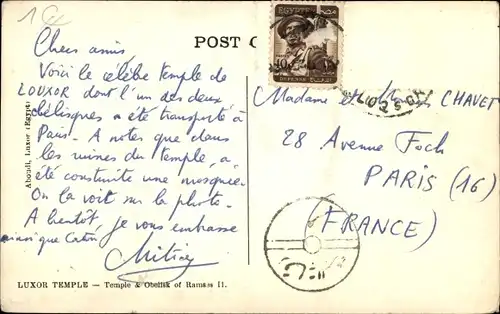 1 €
POST
EGYPTE مصر
40
DEFENSE
Chers amis
Voici le célèbre temple de
LOUXOR dont l'un des deux
obélisques a été transporté à
Paris. A noter que dans
les ruines du temple, a
été construite une mosquée.
On la voit sur la photo.
A bientôt, je vous embrasse
ainsi que
Madame et CHAVET
28 Avenue Foch
PARIS (16)
(FRANCE)
Aboudi, Luxor (Egypt)
LUXOR TEMPLE — Temple & Obelisk of Ramses II.